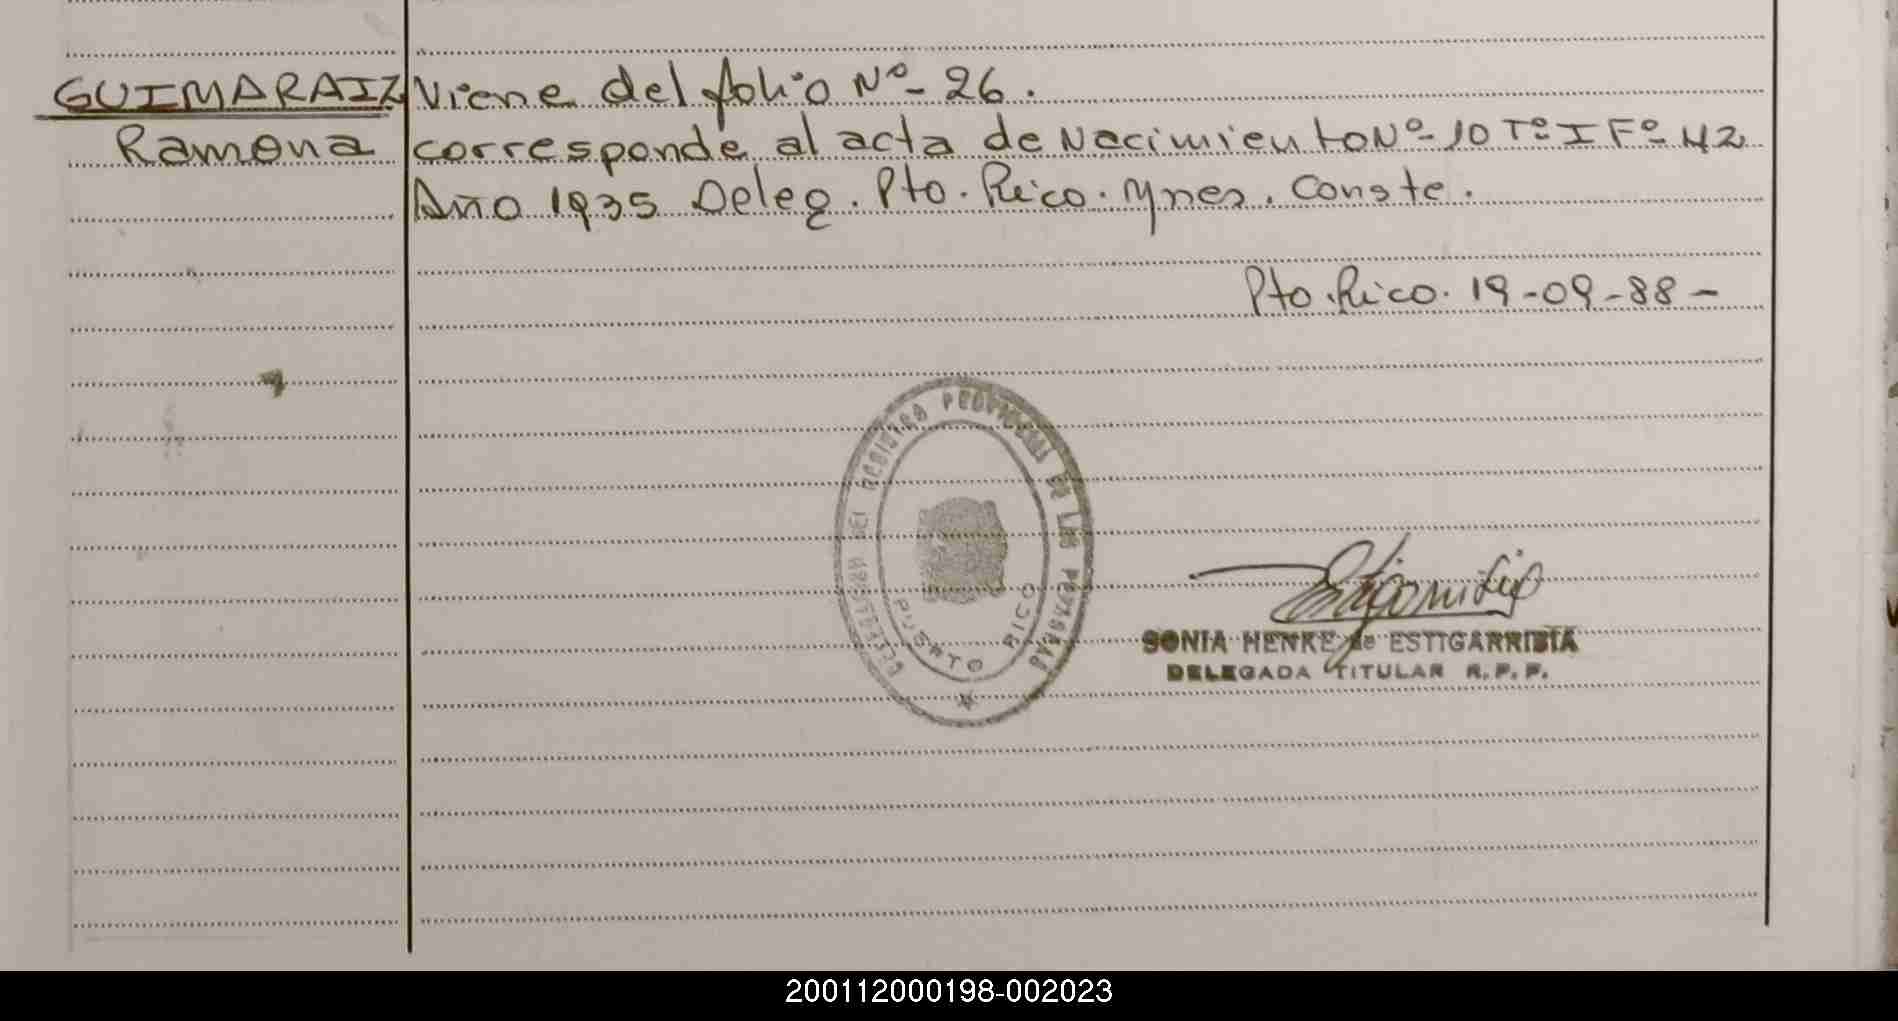 GUIMARAIZ Viene del folio Nº- 26.
Ramona corresponde al acta de Nacimiento Nº- 10 Tº I Fº 42
Año 1935 Deleg. Pto. Rico. Mnes. Conste.
Pto. Rico. 19-09-88-
DEL REGISTRO PROVINCIAL DE LAS PERSONAS
PUERTO RICO
SONIA HENKE de ESTIGARRIBIA
DELEGADA TITULAR R. P. P.
200112000198-002023